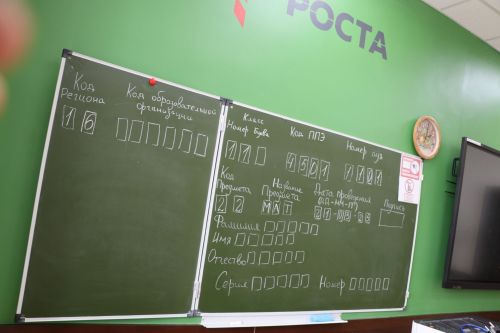 РОСТА
Код
Региона
16
Код образовательной
организации
Класс
Номер Буква
11
Код ППЭ
4501
Номер ауд.
1101
Код
Предмета
22
Название
Предмета
МАТ
Дата проведения
(ДД-ММ-ГГ)
Подпись
Фамилия
Имя
Отчество
Серия
Номер